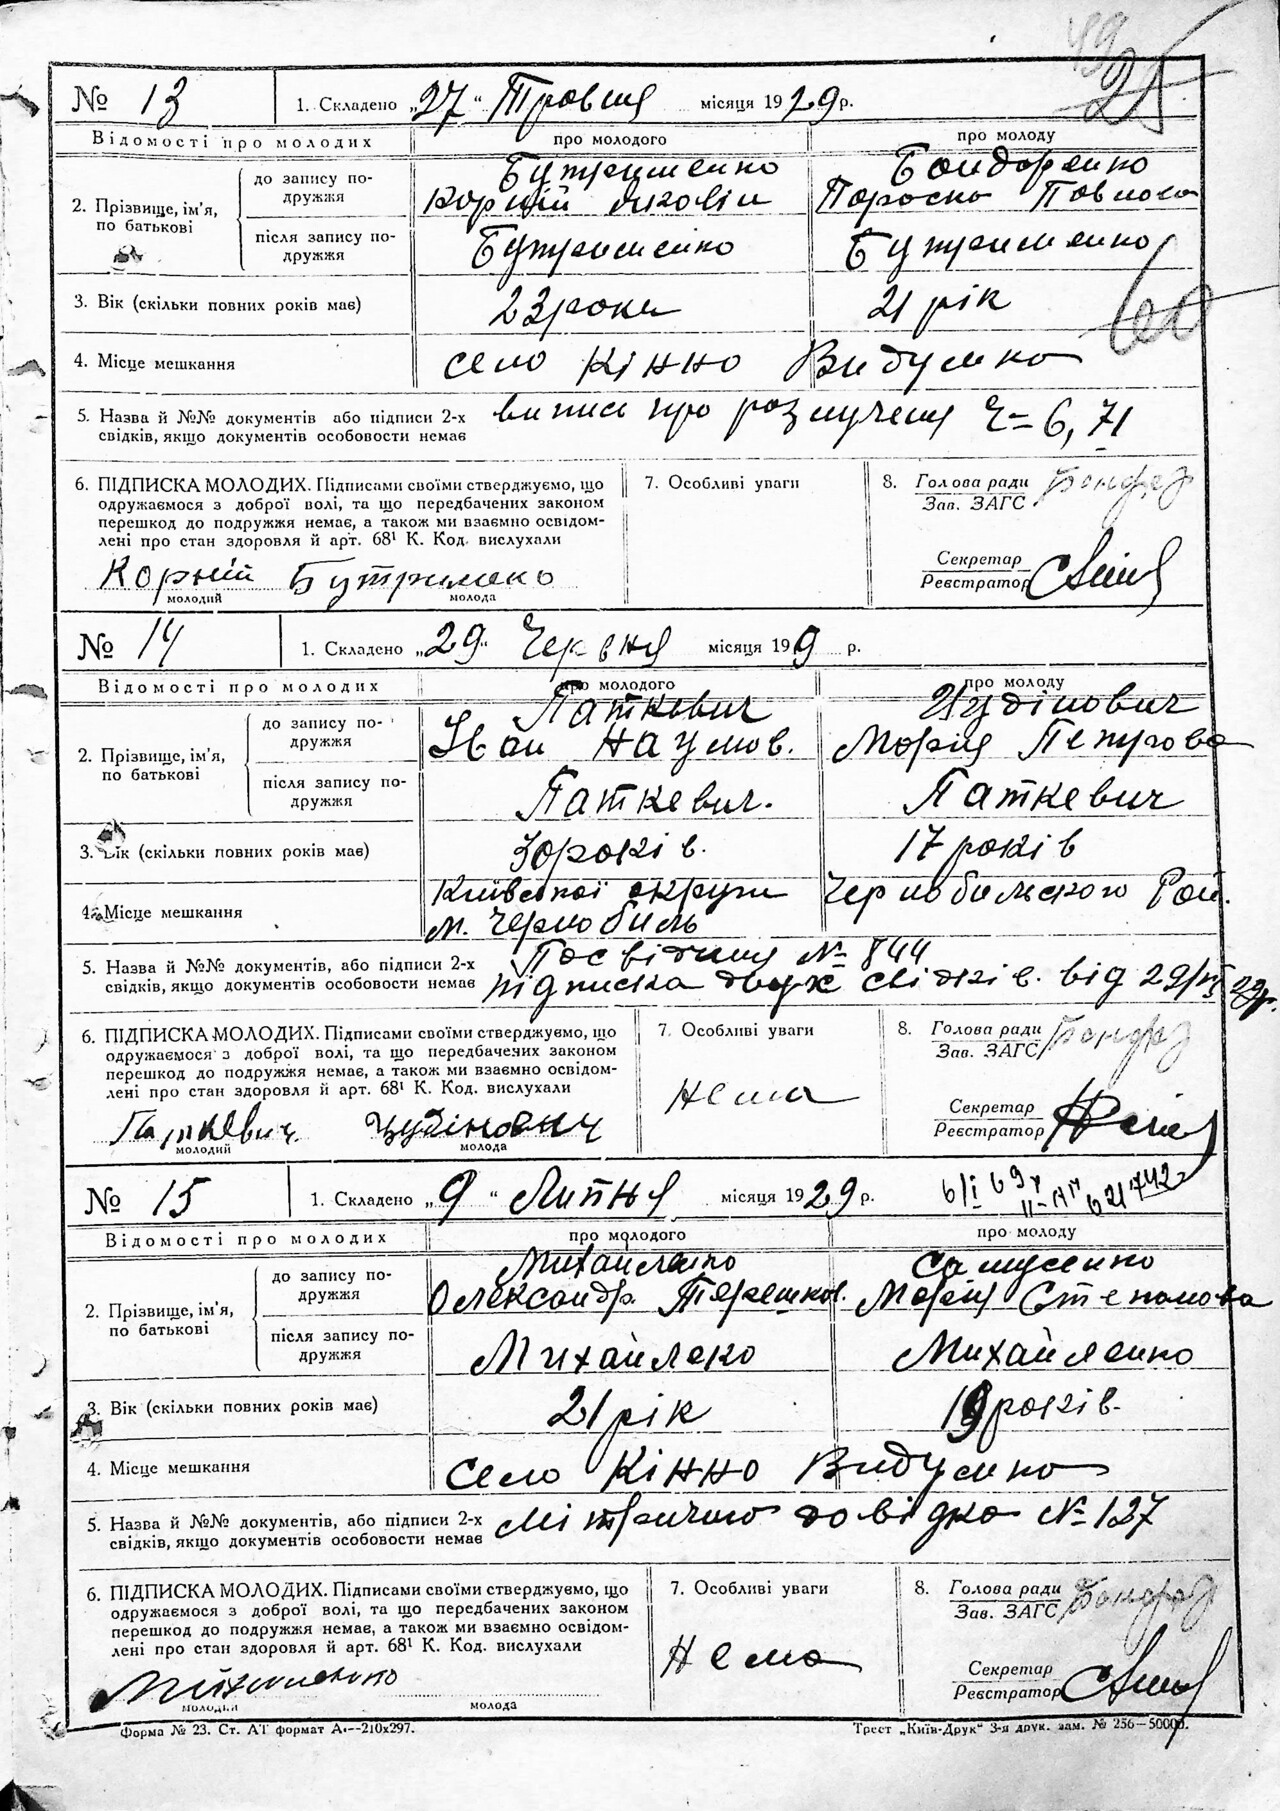 49
25
№ 13 1. Складено „27“ Травня місяця 1929 р.
Відомості про молодих про молодого про молоду
2. Прізвище, ім'я, по батькові
до запису по-дружжя
Бутрименко Бондаренко
Корній Параска Павлова
після запису по-дружжя
Бутрименко Бутрименко
60
3. Вік (скільки повних років має) 23 роки 21 рік
4. Місце мешкання село Кінно Видумка
5. Назва й №№ документів або підписи 2-х
свідків, якщо документів особовости немає
випис про розлучення Ч= 6, 71
6. ПІДПИСКА МОЛОДИХ. Підписами своїми стверджуємо, що
одружаємося з доброї волі, та що передбачених законом
перешкод до подружжя немає, а також ми взаємно освідом-
лені про стан здоровля й арт. 68¹ К. Код. вислухали
Корній Бутрименко
молодий молода
7. Особливі уваги
8. Голова ради
Зав. ЗАГС
Секретар
Реєстратор
№ 14 1. Складено „29“ Червня місяця 19 9 р.
Відомості про молодих про молодого про молоду
2. Прізвище, ім'я,
по батькові
до запису по-
дружжя
Паткевич
Іван Наумов. Марія Петрова
після запису по-
дружжя
Паткевич. Паткевич
3. Вік (скільки повних років має) 30 років. 17 років
4. Місце мешкання
Київської округи Чернобильского Рай.
м. Чернобиль
5. Назва й №№ документів, або підписи 2-х
свідків, якщо документів особовости немає
Посвідчння № 844
підписка двух свідків. від 29/VI 29р.
6. ПІДПИСКА МОЛОДИХ. Підписами своїми стверджуємо, що
одружаємося з доброї волі, та що передбачених законом
перешкод до подружжя немає, а також ми взаємно освідом-
лені про стан здоровля й арт. 68¹ К. Код. вислухали
Паткевич.
молодий молода
7. Особливі уваги
Нема
8. Голова ради
Зав. ЗАГС
Секретар
Реєстратор
№ 15 1. Складено „9“ Липня місяця 1929 р.
6/I 69 р
II-АП 621742
Відомості про молодих про молодого про молоду
2. Прізвище, ім'я,
по батькові
до запису по-
дружжя
Михайленко Самусенко
Олександр. Терешков. Марія Степанова
після запису по-
дружжя
Михайлеко Михайленко
3. Вік (скільки повних років має) 21 рік 19 років.
4. Місце мешкання село Кінно Видумка
5. Назва й №№ документів, або підписи 2-х
свідків, якщо документів особовости немає
Мітрична довідка № 137
6. ПІДПИСКА МОЛОДИХ. Підписами своїми стверджуємо, що
одружаємося з доброї волі, та що передбачених законом
перешкод до подружжя немає, а також ми взаємно освідом-
лені про стан здоровля й арт. 68¹ К. Код. вислухали
Михайленко
молодий молода
7. Особливі уваги
Нема
8. Голова ради
Зав. ЗАГС
Секретар
Реєстратор
Форма № 23. Ст. АТ формат А₄—210х297.
Трест „Київ-Друк“ 3-я друк. зам. № 256—50000.